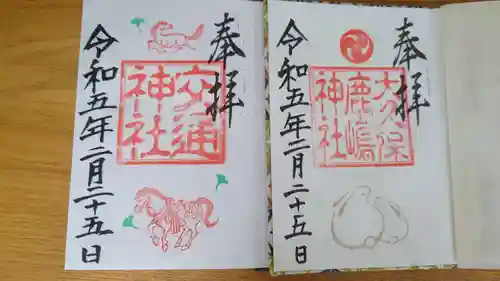 奉拝
交通
神社
令和五年二月二十五日
奉拝
大久保
鹿嶋
神社
令和五年二月二十五日